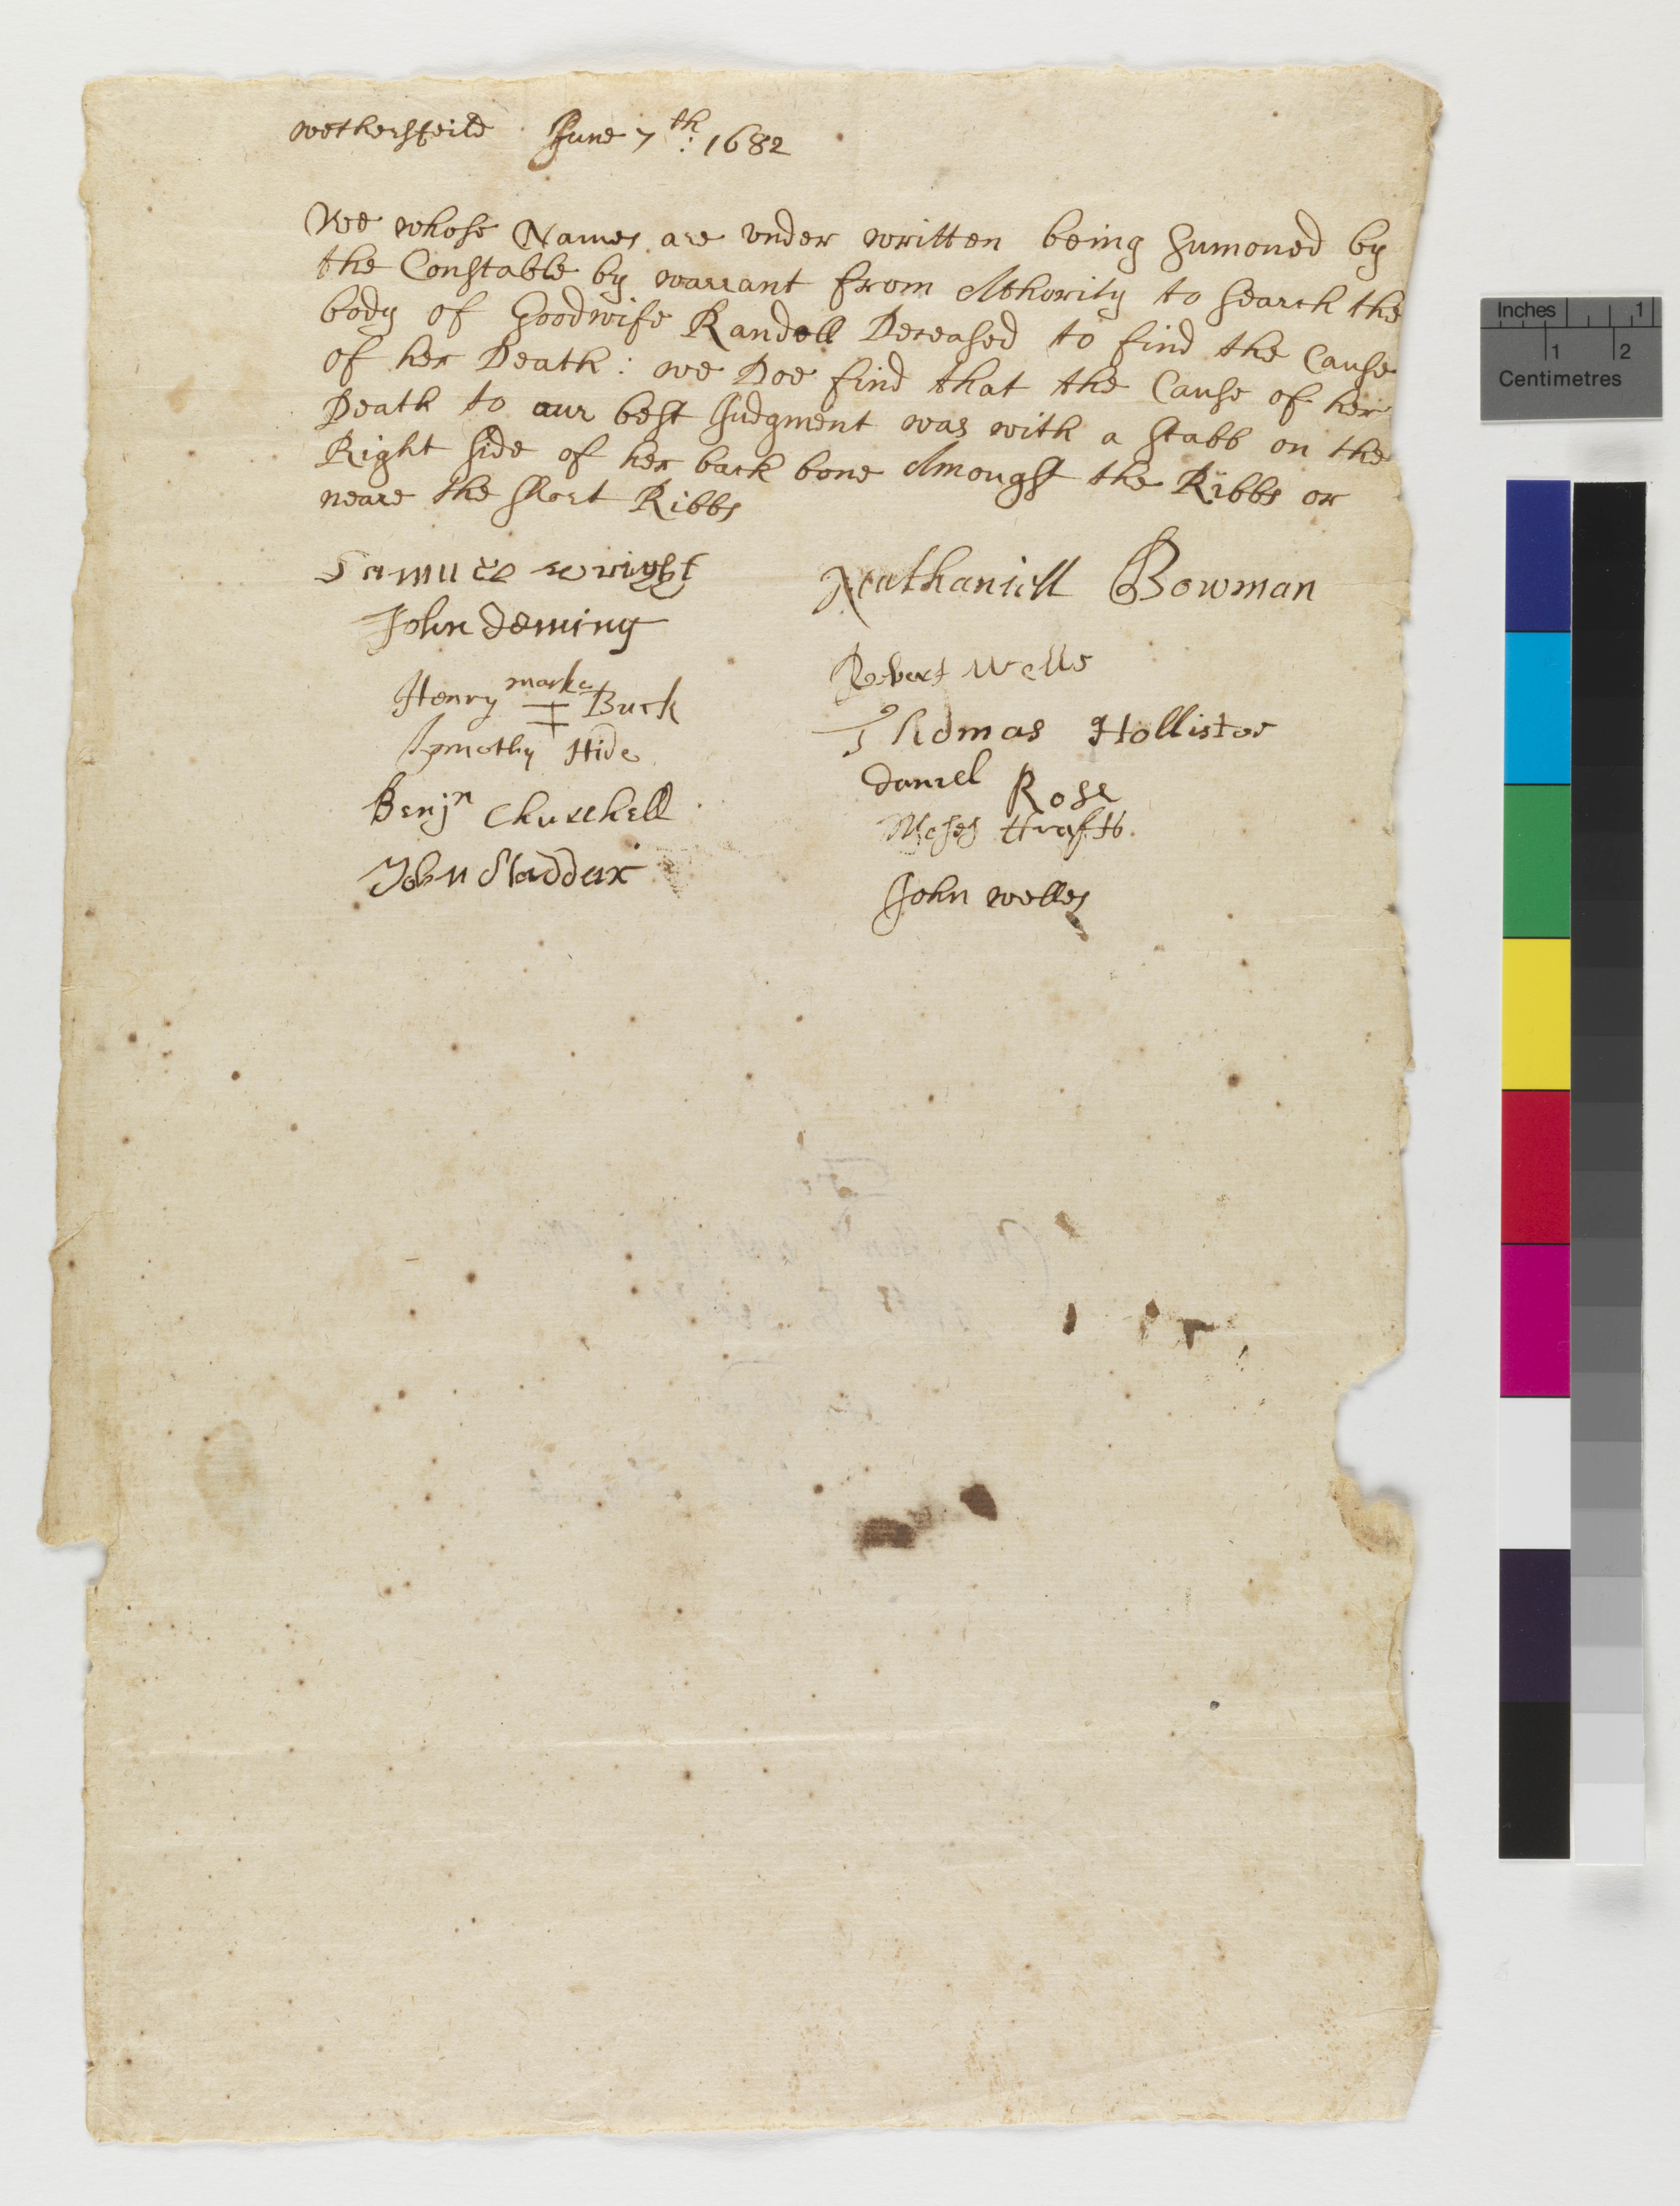 wethersfeild June 7th: 1682
We whose Names are vnder written being sumoned by
the Constable by warrant from Athority to search the
body of Goodwife Randell Deceased to find the Cause
of her Death: we Doe find that the Cause of her
Death to our best Judgment was with a stabb on the
Right side of her back bone Amongst the Ribbs or
neare the short Ribbs
Samuel wright
Nathaniell Bowman
John Deming
Robert Wells
Henry marke Buck
Thomas Hollister
Tymothy Hide
daniel Rose
Benjn Churchell
Moses Crafts
John Maddux
John welles
Inches 1
1 2
Centimetres